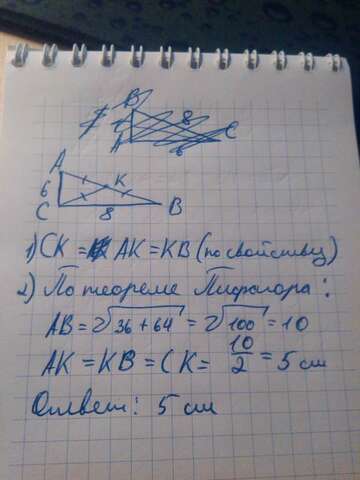 A
6
K
C
8
B
1) CK = AK = KB (по свойству)
2) По теореме Пифагора:
AB = √36 + 64 = √100 = 10
AK = KB = CK = 10/2 = 5 см
Ответ: 5 см